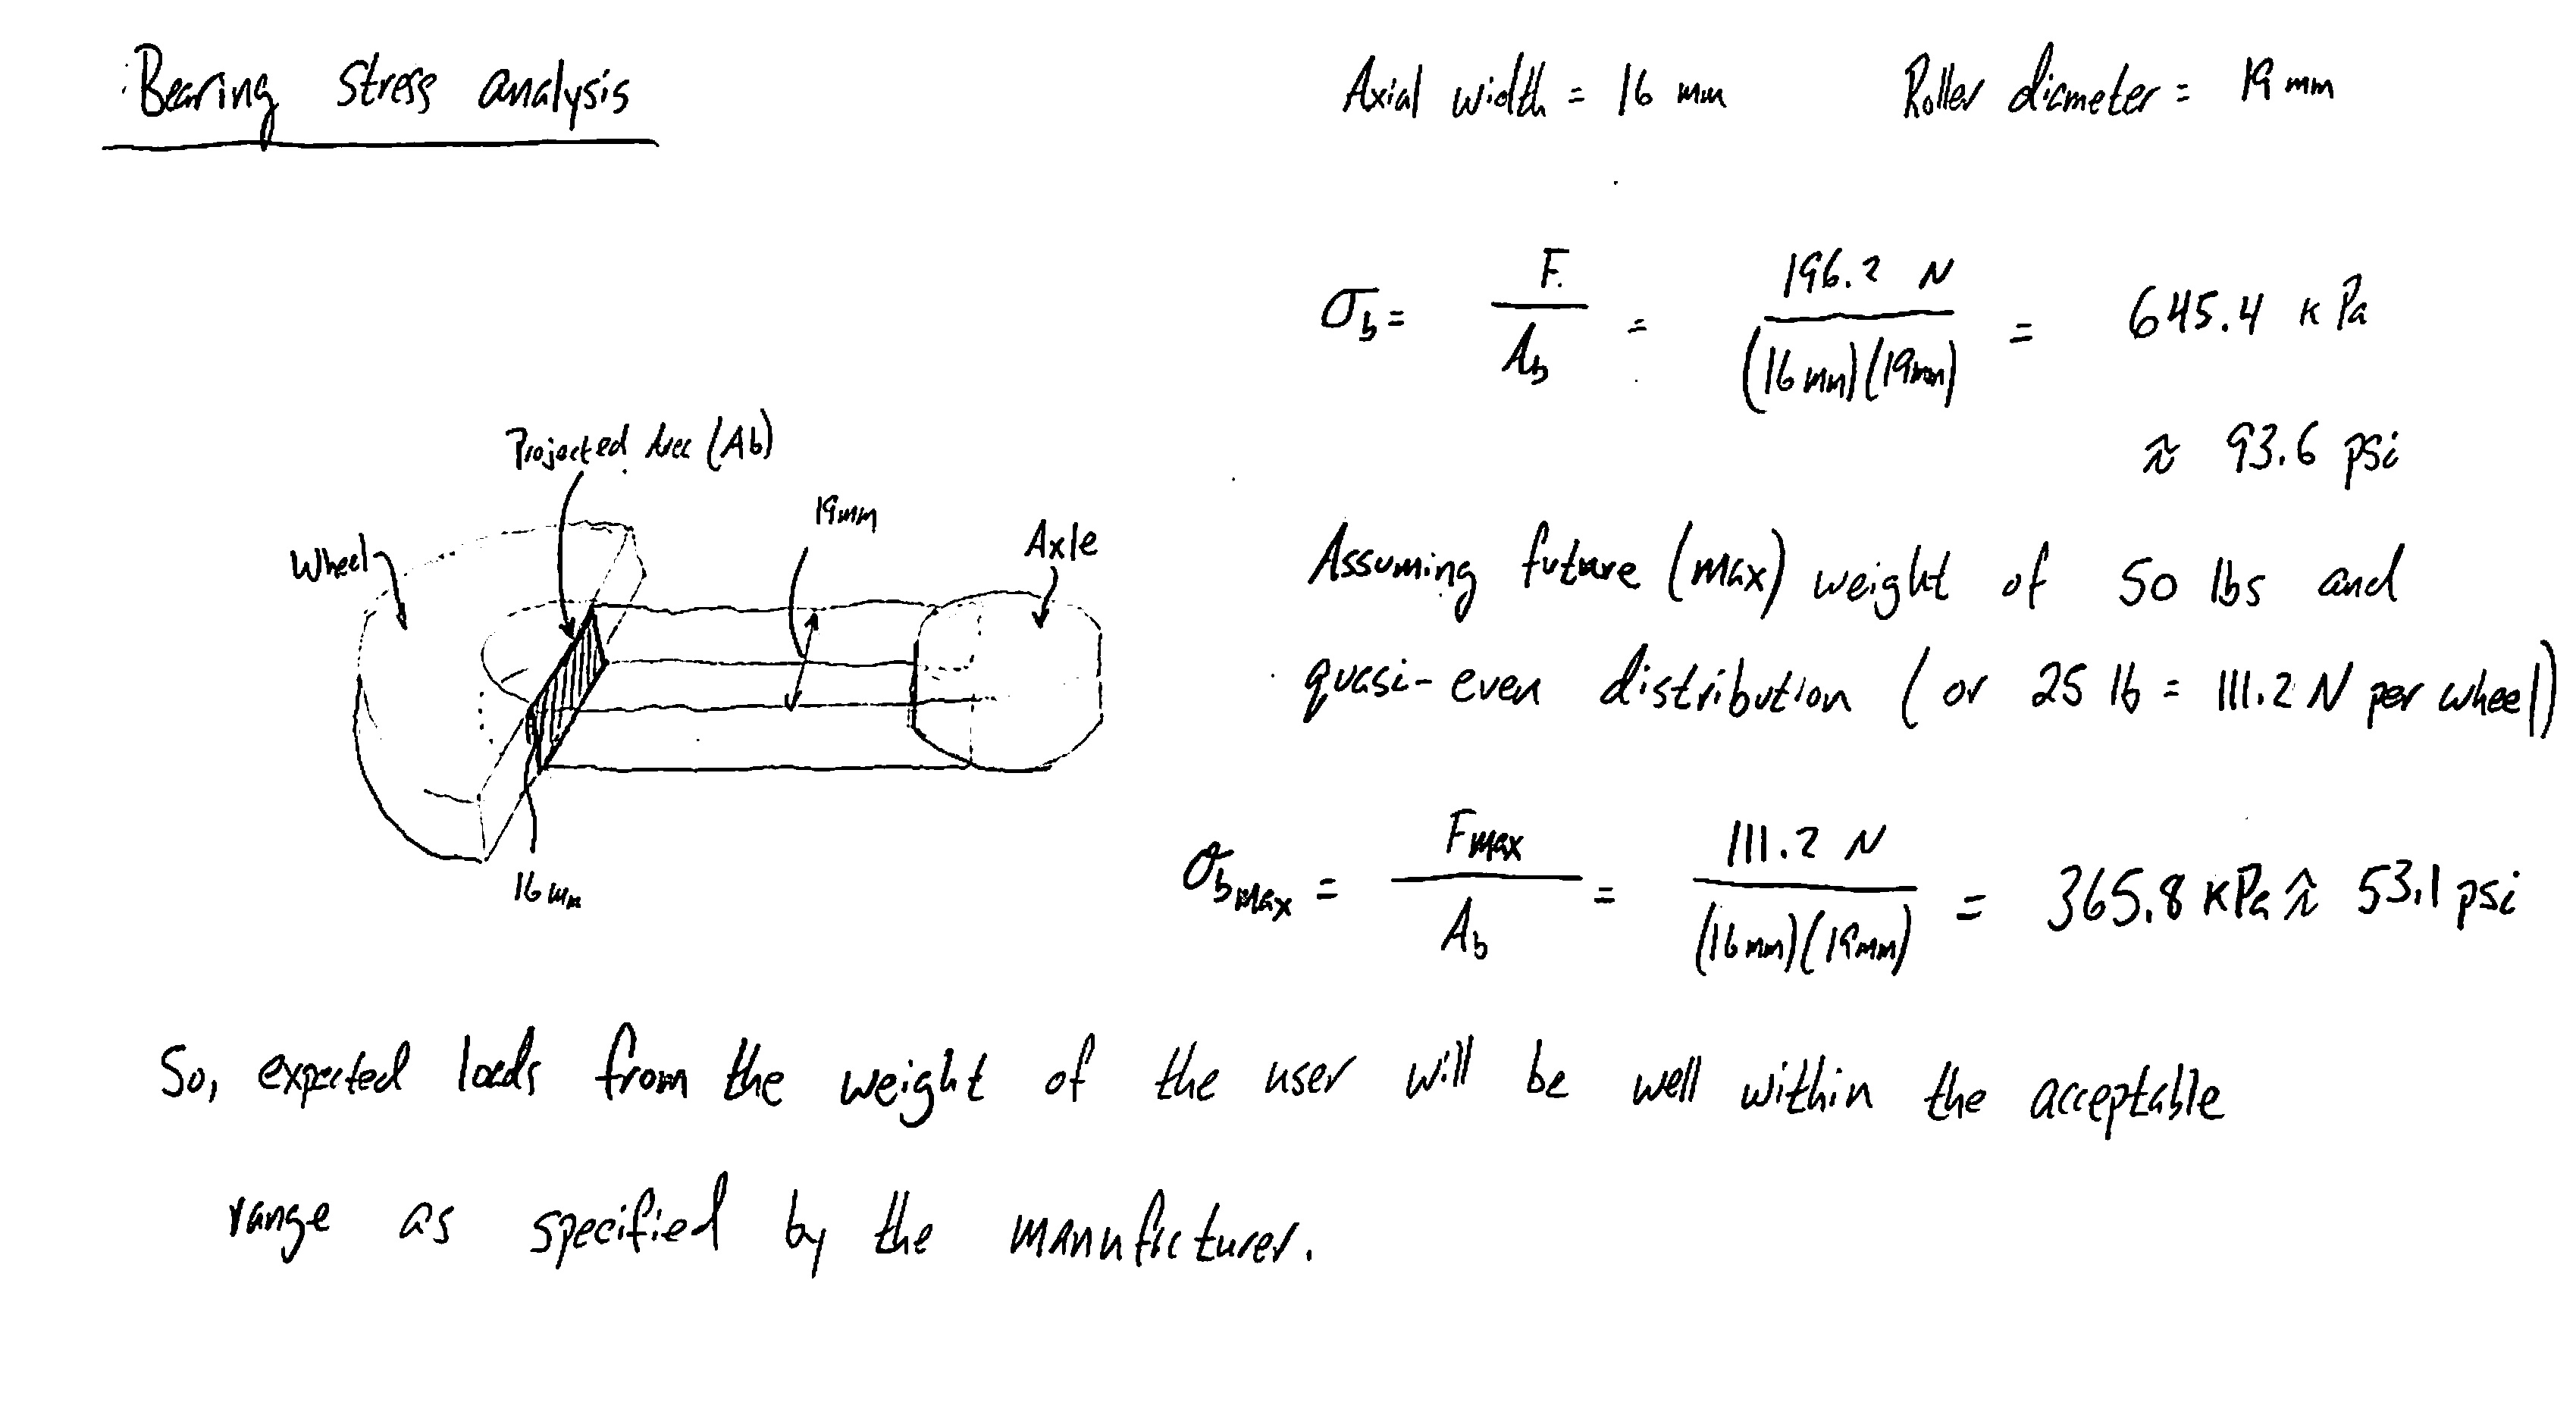 Bearing stress analysis
Axial width = 16 mm
Roller diameter = 19 mm
σb = F / Ab = 196.2 N / (16 mm)(19mm) = 645.4 kPa
≈ 93.6 psi
Projected Area (Ab)
19mm
Wheel
Axle
16 mm
Assuming future (max) weight of 50 lbs and
quasi-even distribution (or 25 lb = 111.2 N per wheel)
σb max = Fmax / Ab = 111.2 N / (16 mm)(19mm) = 365.8 kPa ≈ 53.1 psi
So, expected loads from the weight of the user will be well within the acceptable
range as specified by the manufacturer.